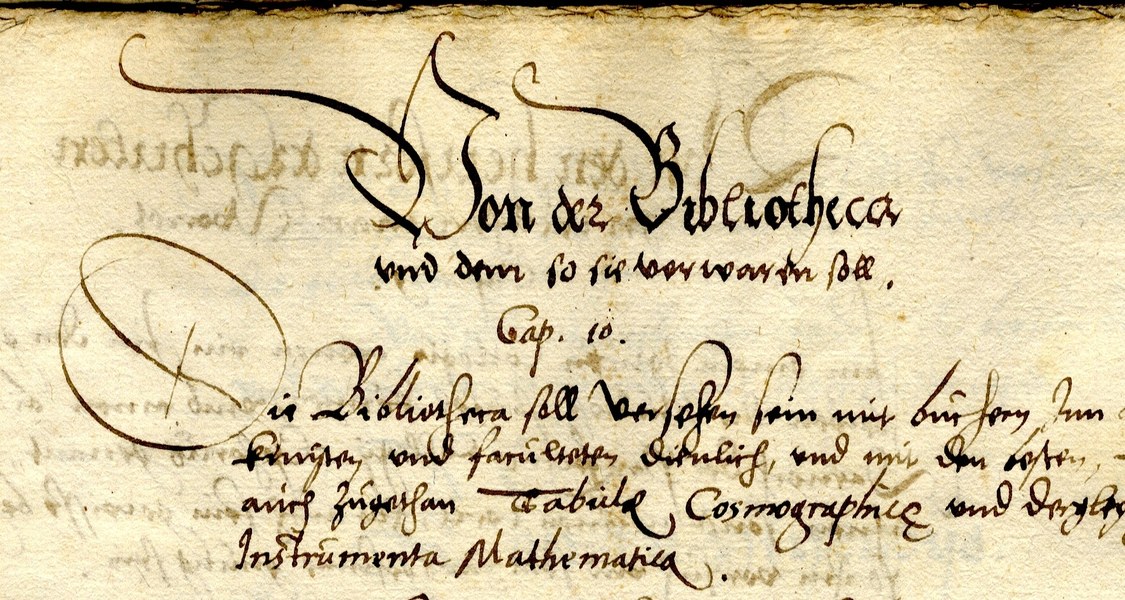 Von der Bibliotheca
vnd dem so sie verwaren soll.
Cap. 10.
Die Bibliotheca soll versehen sein mit büchern Inn
künsten vnd faculteten dienlich, vnd mit den besten,
auch zugethan Tabulæ Cosmographicæ vnd
Instrumenta Mathematica.